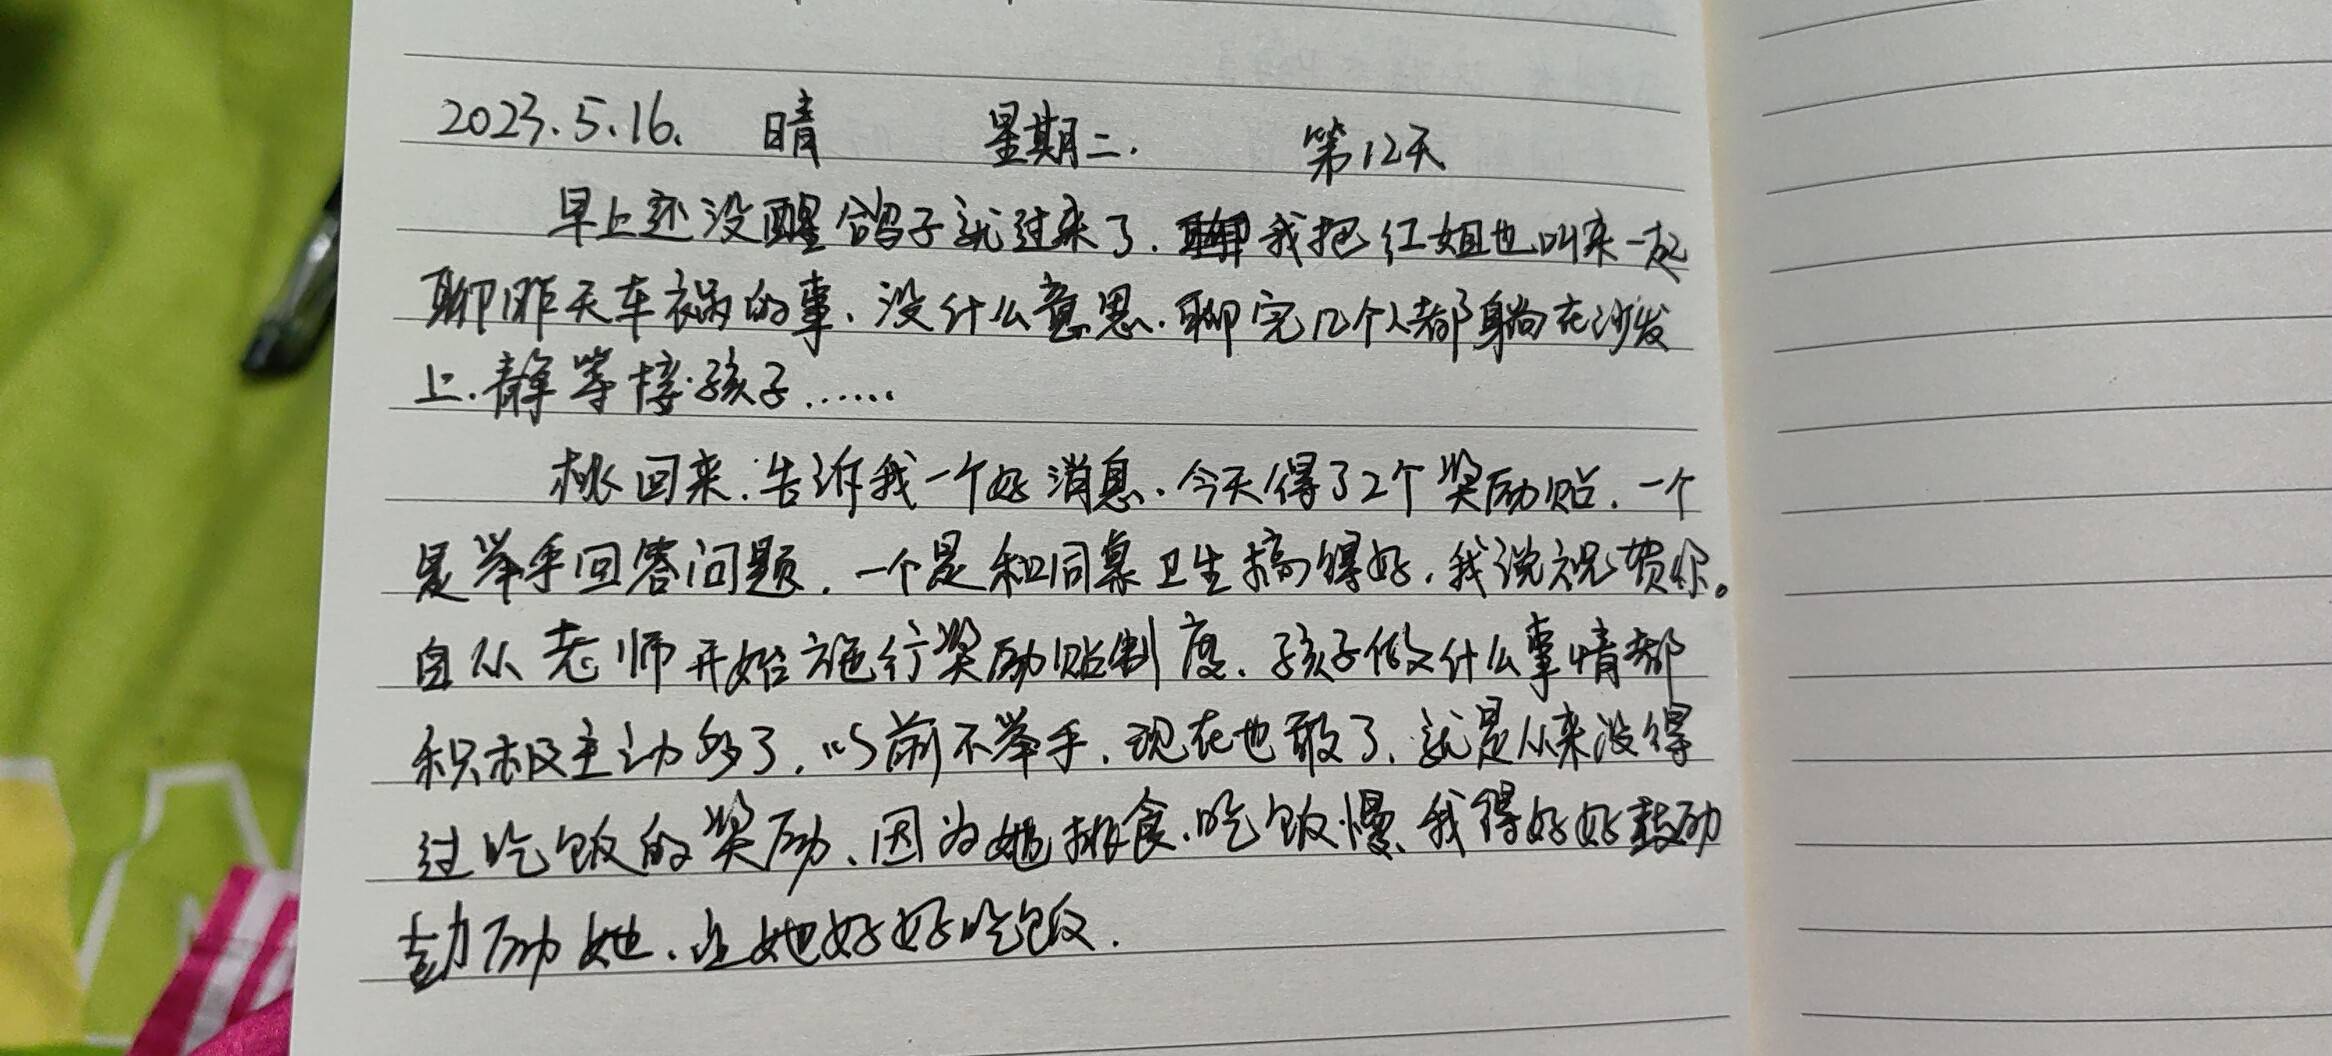 2023.5.16. 晴 星期二. 第12天
早上还没醒鸽子就过来了.我把红姐也叫来一起
聊昨天车祸的事、没什么意思.聊完几个人都躺在沙发
上.静等接孩子……
桃回来.告诉我一个好消息、今天得了2个奖励贴.一个
是举手回答问题.一个是和同桌卫生搞得好.我说祝贺你。
自从老师开始施行奖励贴制度、孩子做什么事情都
积极主动多了.以前不举手.现在也敢了、就是从来没得
过吃饭的奖励、因为她挑食、吃饭慢、我得好好鼓励
励她、让她好好吃饭.